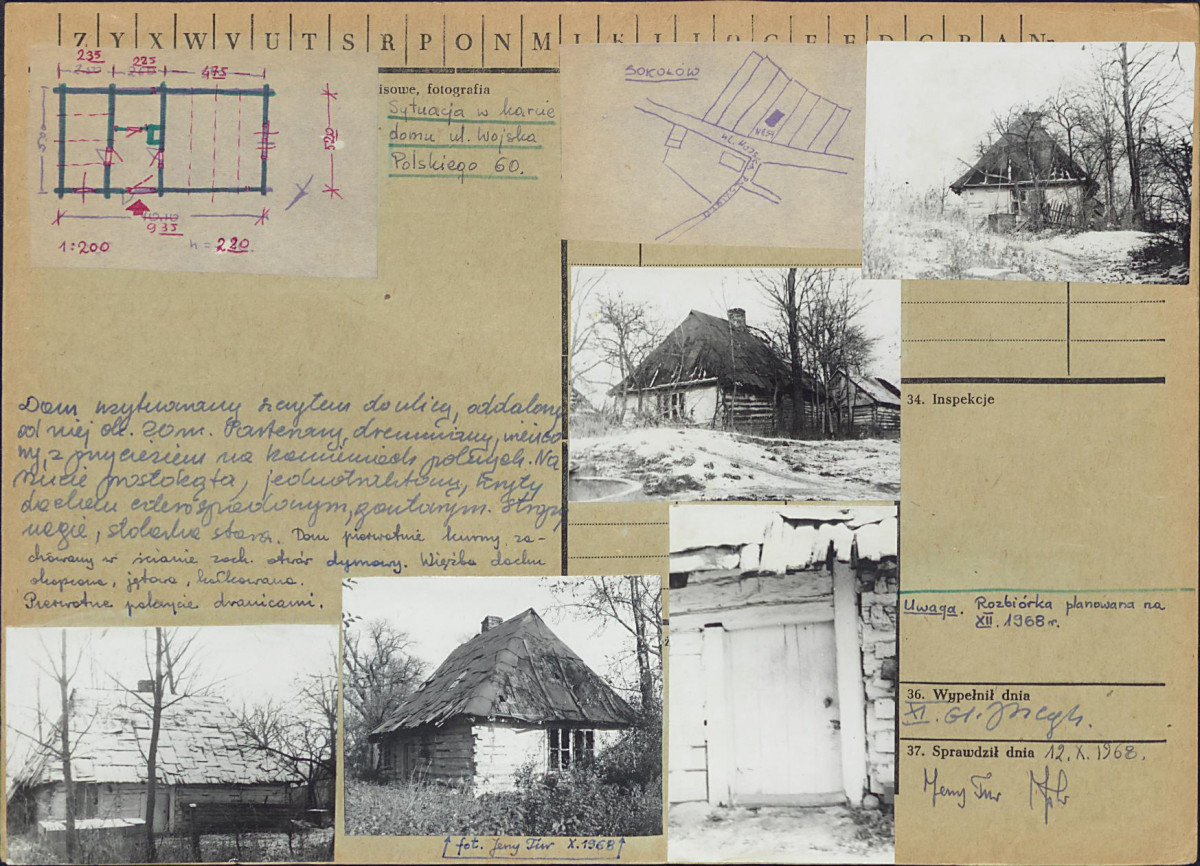 Z Y X W V U T S R P O N M
235
225
475
500
520
10.10
9 35
1:200
h = 220.
isowe, fotografia
Sytuacja w karcie
domu ul. Wojska
Polskiego 60.
SOKOŁÓW
Dom usytuowany szczytem do ulicy, oddalony
od niej ok. 20 m.
z przyciesiem na kamieniach polnych. Na
rzucie prostokąta, jednotraktowy, kryty
dachem czterospadowym, gontowym. Stropy
nagie, stolarka stara. Dom pierwotnie kurny, za-
chowany w ścianie zach. otwór dymowy. Więźba dachu
okopcona, jętowa, kołkowana.
Pierwotne pokrycie dranicami.
34. Inspekcje
Uwaga. Rozbiórka planowana na
XII. 1968 r.
36. Wypełnił dnia
XI.
37. Sprawdził dnia 12. X. 1968.
fot. Jerzy Tur X. 1968
Jerzy Tur